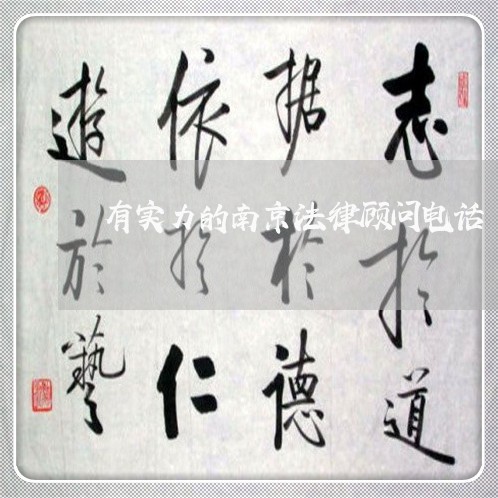 志於道
据於德
依於仁
遊於藝
有实力的南京法律顾问电话